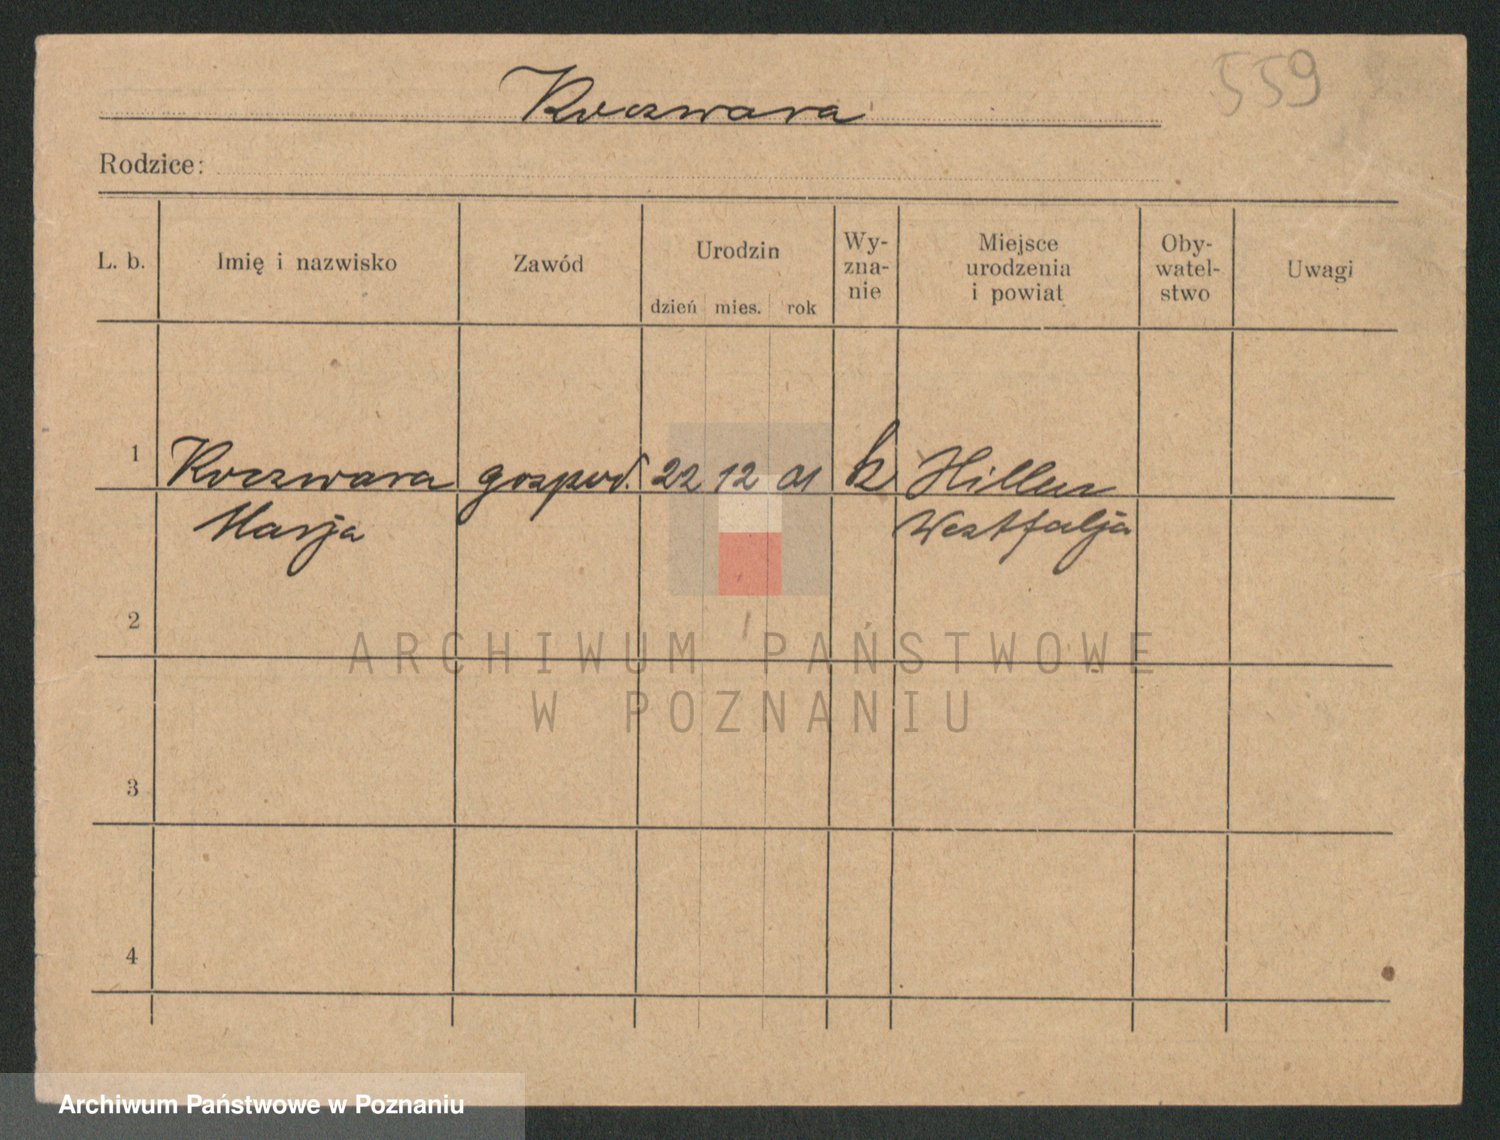 559
Koczwara
Rodzice:
L. b.
Imię i nazwisko
Zawód
Urodzin
dzień mies. rok
Wy-
zna-
nie
Miejsce
urodzenia
i powiat
Oby-
watel-
stwo
Uwagi
1 Koczwara gospod. 22 12 01 k Hillen
Marja Westfalja
2
3
4
ARCHIWUM PAŃSTWOWE
W POZNANIU
Archiwum Państwowe w Poznaniu